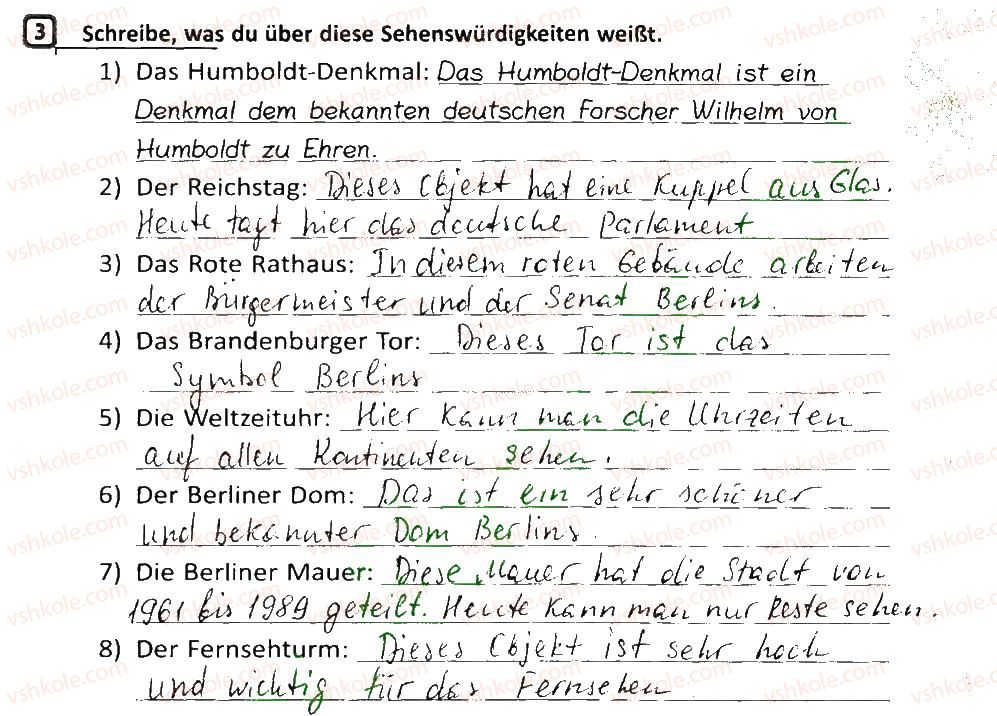 3 Schreibe, was du über diese Sehenswürdigkeiten weißt.
1) Das Humboldt-Denkmal: Das Humboldt-Denkmal ist ein
Denkmal dem bekannten deutschen Forscher Wilhelm von
Humboldt zu Ehren.
2) Der Reichstag: Dieses Objekt hat eine Kuppel aus Glas.
Heute tagt hier das deutsche Parlament
3) Das Rote Rathaus: In diesem roten Gebäude arbeiten
der Bürgermeister und der Senat Berlins.
4) Das Brandenburger Tor: Dieses Tor ist das
Symbol Berlins
5) Die Weltzeituhr: Hier kann man die Uhrzeiten
auf allen Kontinenten sehen.
6) Der Berliner Dom: Das ist ein sehr schöner
und bekannter Dom Berlins.
7) Die Berliner Mauer: Diese Mauer hat die Stadt von
1961 bis 1989 geteilt. Heute kann man nur Reste sehen.
8) Der Fernsehturm: Dieses Objekt ist sehr hoch
und wichtig für das Fernsehen